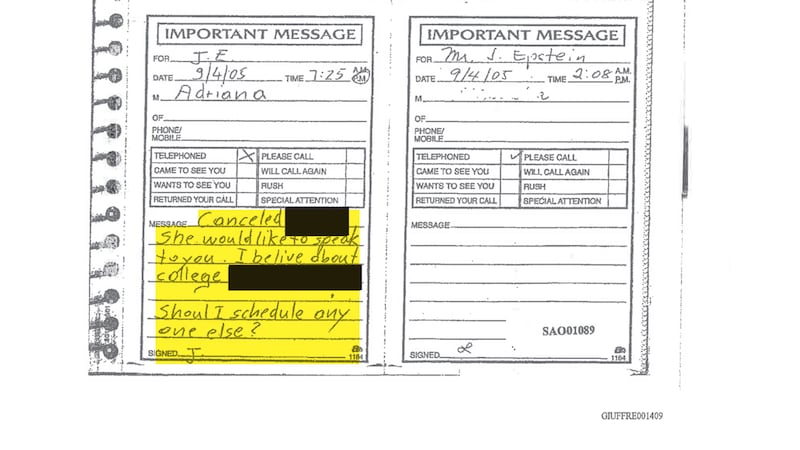 IMPORTANT MESSAGE
FOR J.E
DATE 9/4/05 TIME 7:25 A.M. P.M.
M Adriana
OF
PHONE/
MOBILE
TELEPHONED X PLEASE CALL
CAME TO SEE YOU WILL CALL AGAIN
WANTS TO SEE YOU RUSH
RETURNED YOUR CALL SPECIAL ATTENTION
MESSAGE Canceled
She would like to speak
to you. I belive about
college
Shoul I schedule any
one else?
SIGNED J.
1184
IMPORTANT MESSAGE
FOR Mr. J. Epstein
DATE 9/4/05 TIME 2:08 A.M. P.M.
M
OF
PHONE/
MOBILE
TELEPHONED ✓ PLEASE CALL
CAME TO SEE YOU WILL CALL AGAIN
WANTS TO SEE YOU RUSH
RETURNED YOUR CALL SPECIAL ATTENTION
MESSAGE
SAO01089
SIGNED
1184
GIUFFRE001409